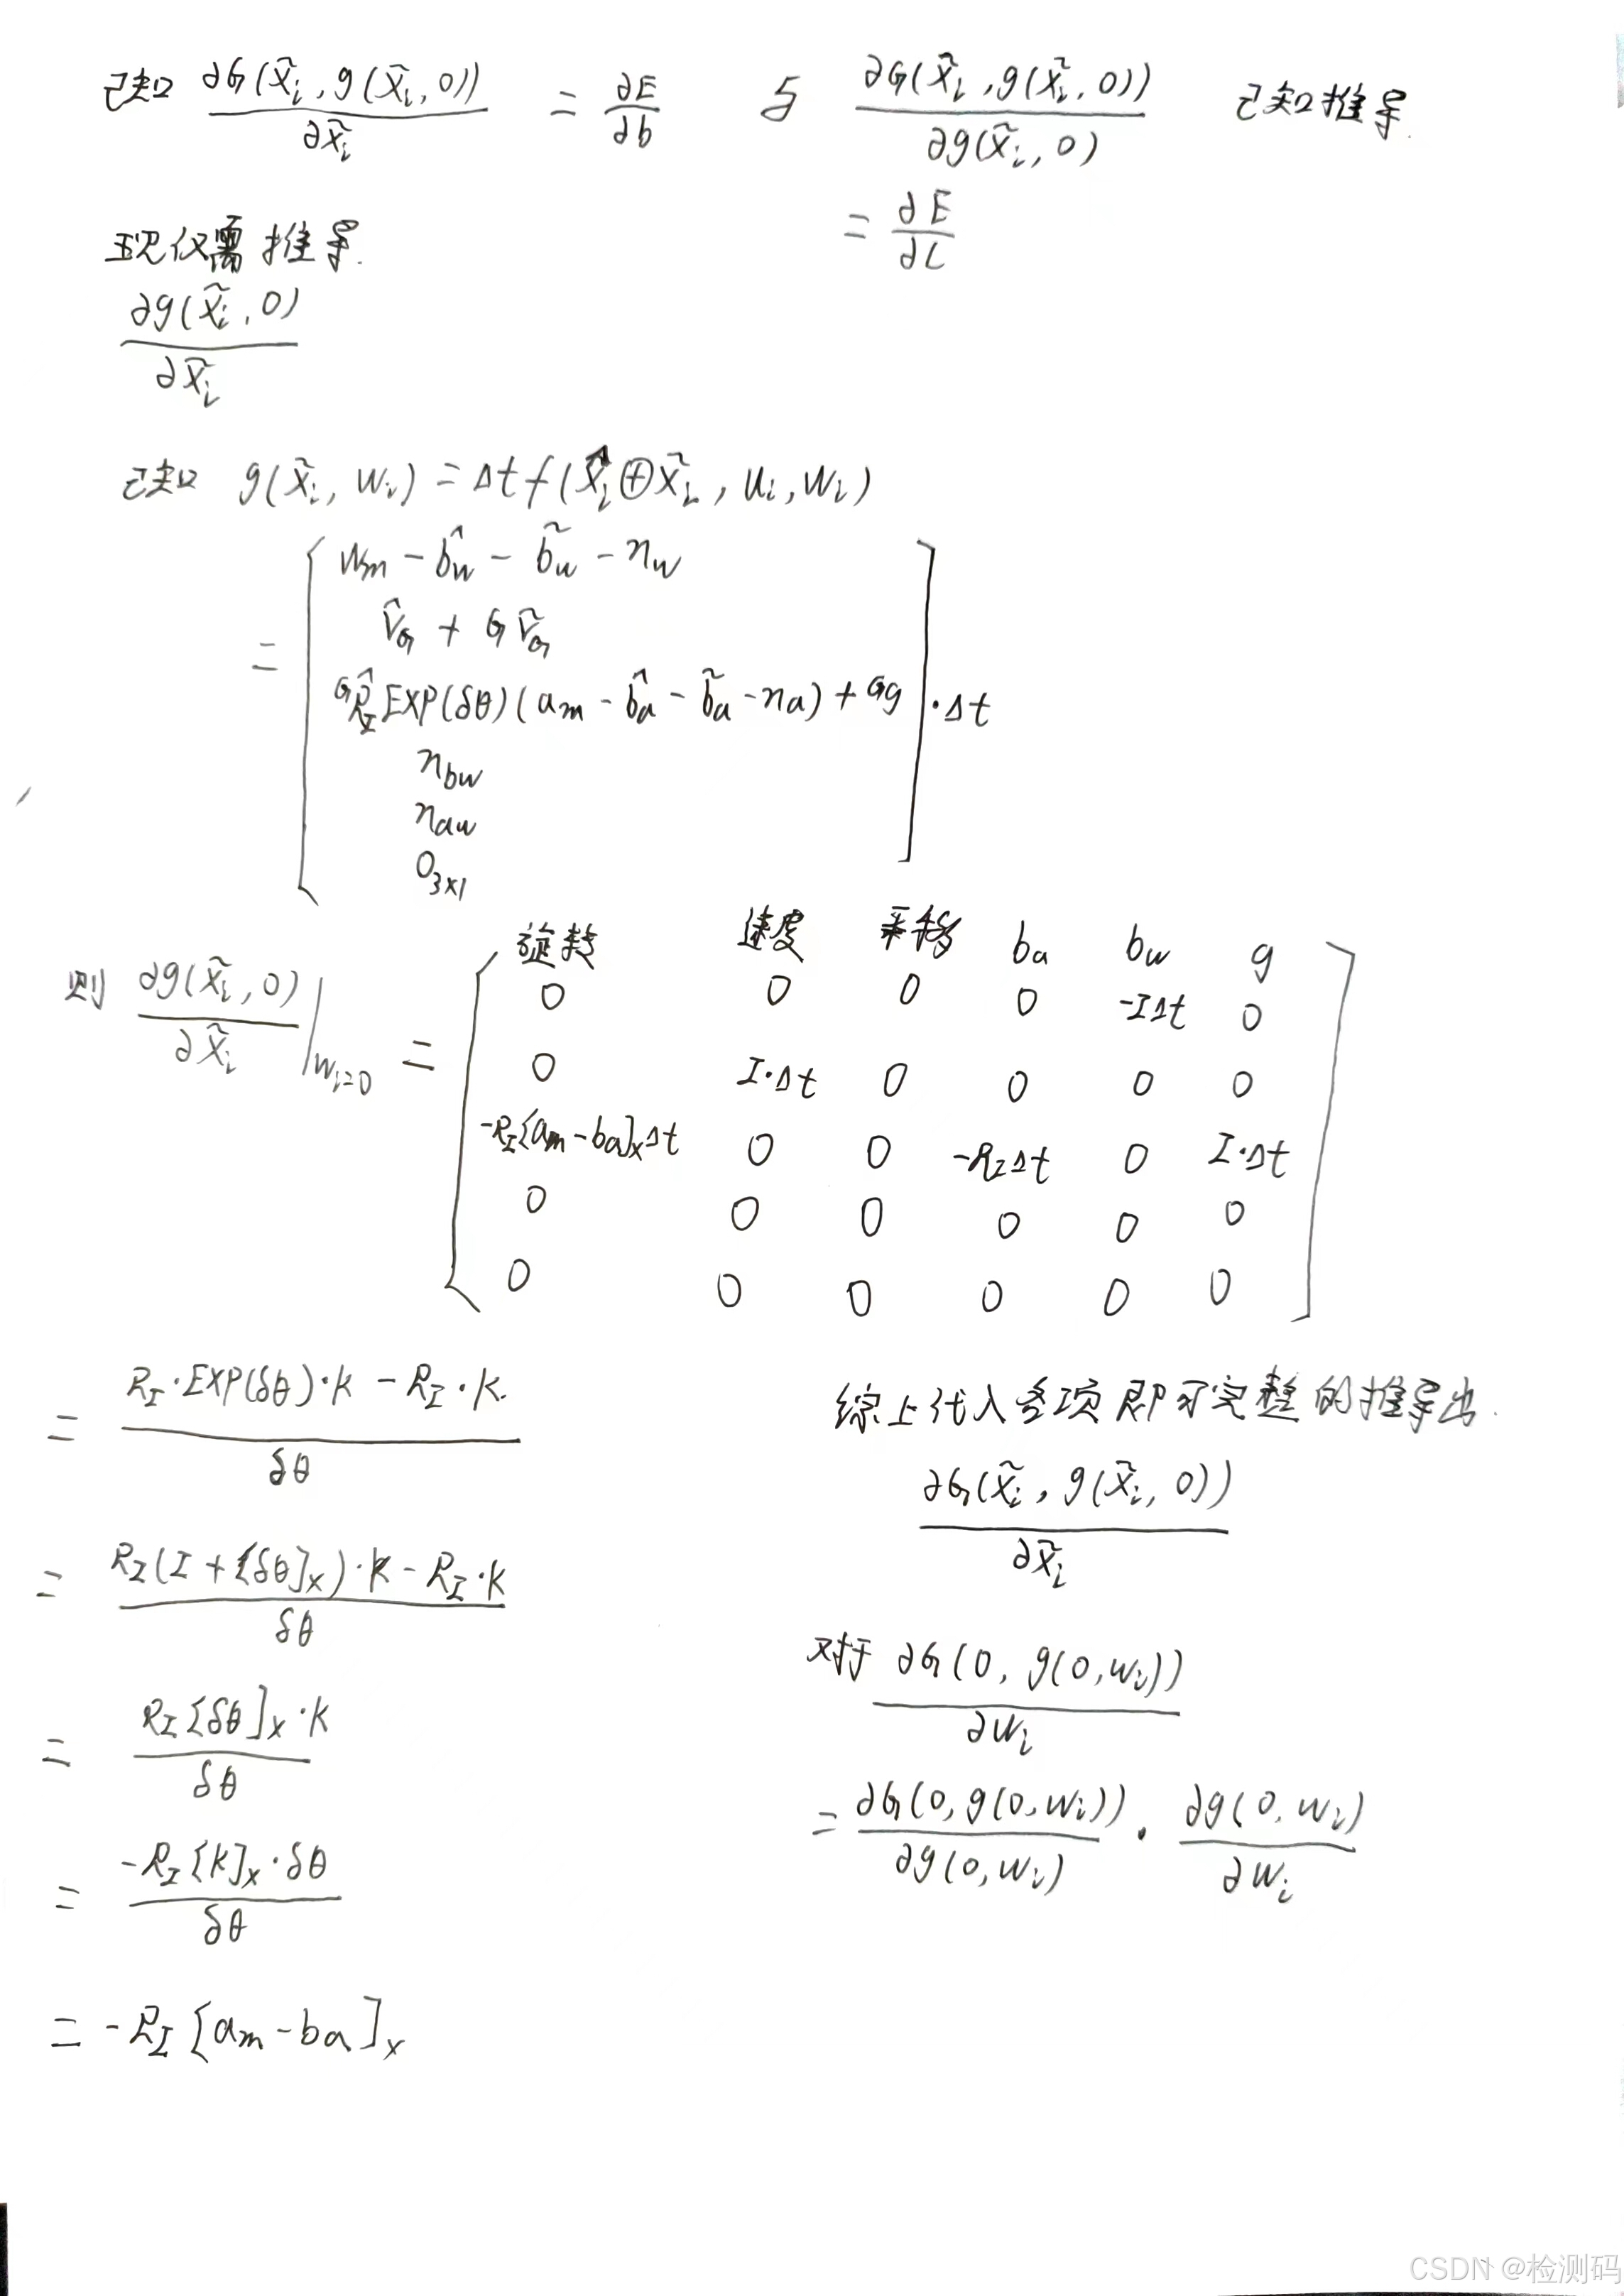 已知 ∂G(x̃ᵢ, g(x̃ᵢ, 0)) / ∂x̃ᵢ = ∂E / ∂b 与 ∂G(x̃ᵢ, g(x̃ᵢ, 0)) / ∂g(x̃ᵢ, 0) 已知推导.
= ∂E / ∂C
现仅需推导.
∂g(x̃ᵢ, 0) / ∂x̃ᵢ
已知 g(x̃ᵢ, wᵢ) = Δt f(x̂ᵢ ⊕ x̃ᵢ, uᵢ, wᵢ)
= [ Wm - b̂w - b̃w - nw
V̂G + GṼG
GR̂I EXP(δθ)(am - b̂a - b̃a - na) + Gg ] · Δt
nbw
naw
0₃ₓ₁
旋转 速度 平移 ba bw g
则 ∂g(x̃ᵢ, 0) / ∂x̃ᵢ |wᵢ=0 = [ 0 0 0 0 -IΔt 0
0 I·Δt 0 0 0 0
-RI[am - ba]×Δt 0 0 -RIΔt 0 I·Δt
0 0 0 0 0 0
0 0 0 0 0 0 ]
= RI·EXP(δθ)·K - RI·K. / δθ
= RI(I + [δθ]×)·K - RI·K / δθ
= RI[δθ]×·K / δθ
= -RI[K]×·δθ / δθ
= -RI[am - ba]×
综上代入各项即可完整的推导出.
∂G(x̃ᵢ, g(x̃ᵢ, 0)) / ∂x̃ᵢ
对于 ∂G(0, g(0, wᵢ)) / ∂wᵢ
= ∂G(0, g(0, wᵢ)) / ∂g(0, wᵢ) · ∂g(0, wᵢ) / ∂wᵢ
CSDN @检测码